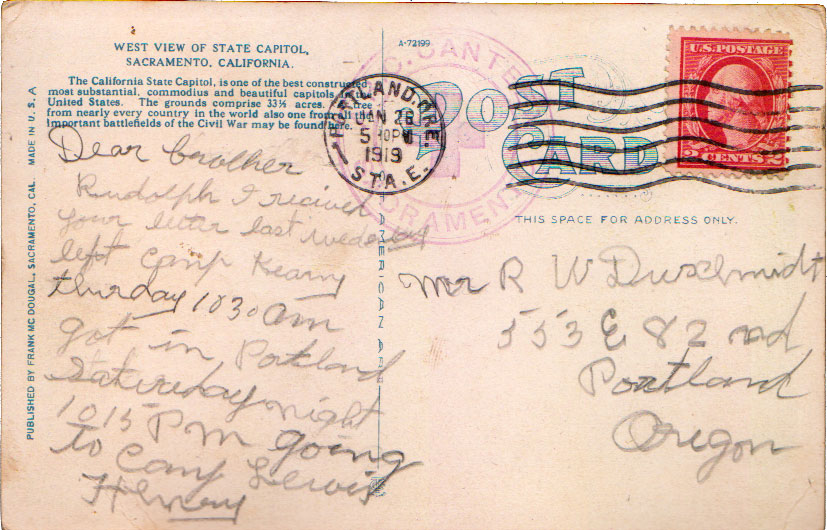 WEST VIEW OF STATE CAPITOL,
SACRAMENTO, CALIFORNIA.
The California State Capitol, is one of the best constructed
most substantial, commodius and beautiful capitols in the
United States. The grounds comprise 33⅓ acres. A tree
from nearly every country in the world also one from all the
important battlefields of the Civil War may be found here.
Dear brother
Rudolph I recived
your letter last
left Camp Kearny
thursday 1030 am
got in Portland
Saturday night
1015 PM going
to Camp Lewis
Henry
MADE IN U.S.A
PUBLISHED BY FRANK MC DOUGAL, SACRAMENTO, CAL.
A-72199
CANTE
SACRAMEN
AMERICAN
PORTLAND, ORE.
JAN 26
5 PM
1919
STA. E.
POST
CARD
U.S. POSTAGE
2 CENTS 2
THIS SPACE FOR ADDRESS ONLY.
Mr R W Duschmidt
553 E 82 nd
Portland
Oregon